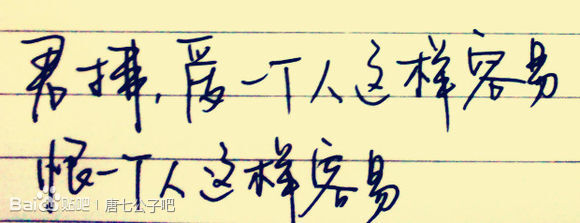 君拂，爱一个人这样容易
恨一个人这样容易
Bai贴吧 | 唐七公子吧